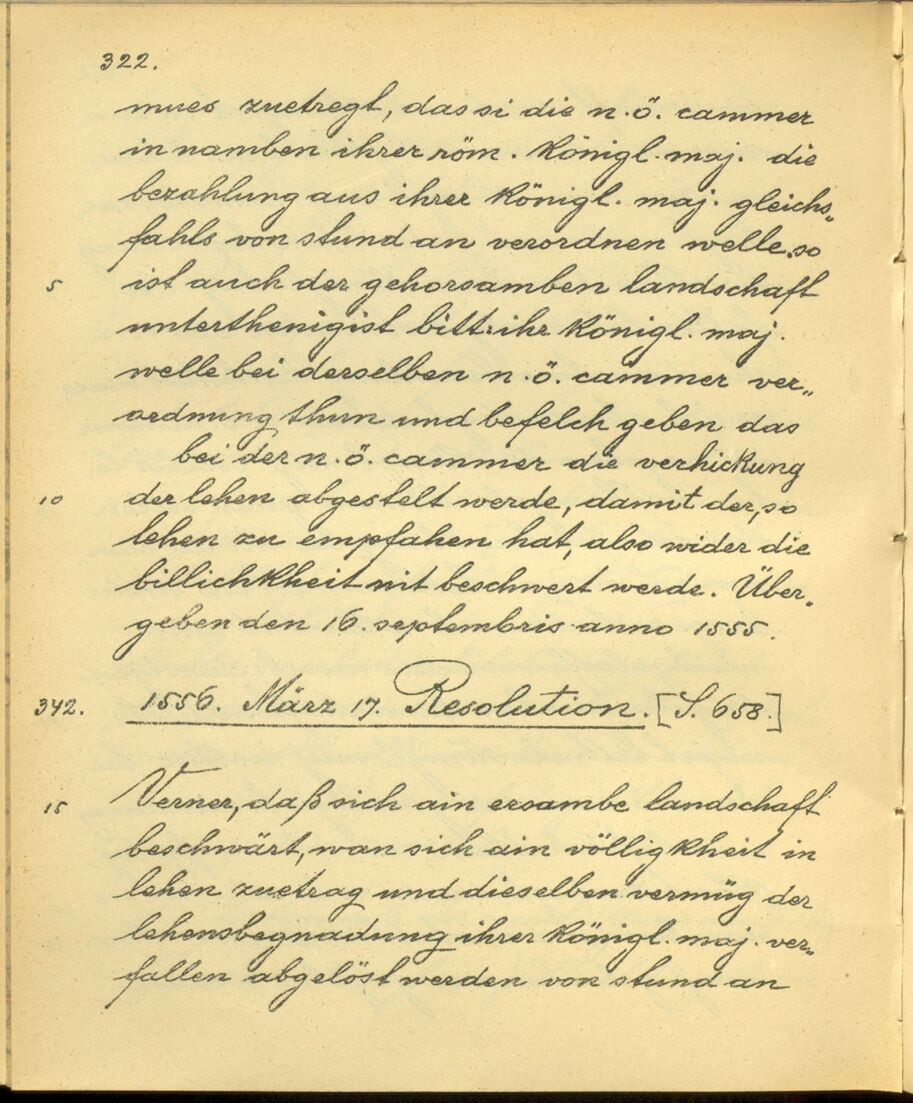 322.
mues zuetregt, das si die n. ö. cammer
in namben ihrer röm. königl. maj. die
bezahlung aus ihrer königl. maj. gleichs„
fahls von stund an verordnen welle, so
5 ist auch der gehorsamben landschaft
unterthenigist bitt: ihr königl. maj.
welle bei derselben n. ö. cammer ver„
ordnung thun und befelch geben das
bei der n. ö. cammer die verhickung
10 der lehen abgestelt werde, damit der, so
lehen zu empfahen hat, also wider die
billichkheit nit beschwert werde. Über„
geben den 16. septembris anno 1555.
342. 1556. März 17. Resolution. [S. 658.]
15 Verner, daß sich ain ersambe landschaft
beschwärt, wan sich ain völligkheit in
lehen zuetrag und dieselben vermüg der
lehensbegnadung ihrer königl. maj. ver„
fallen abgelöst werden von stund an